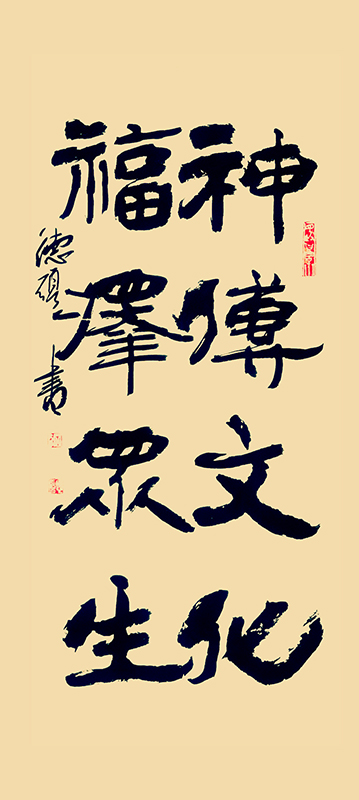 神傳文化
福澤眾生
德碩 書